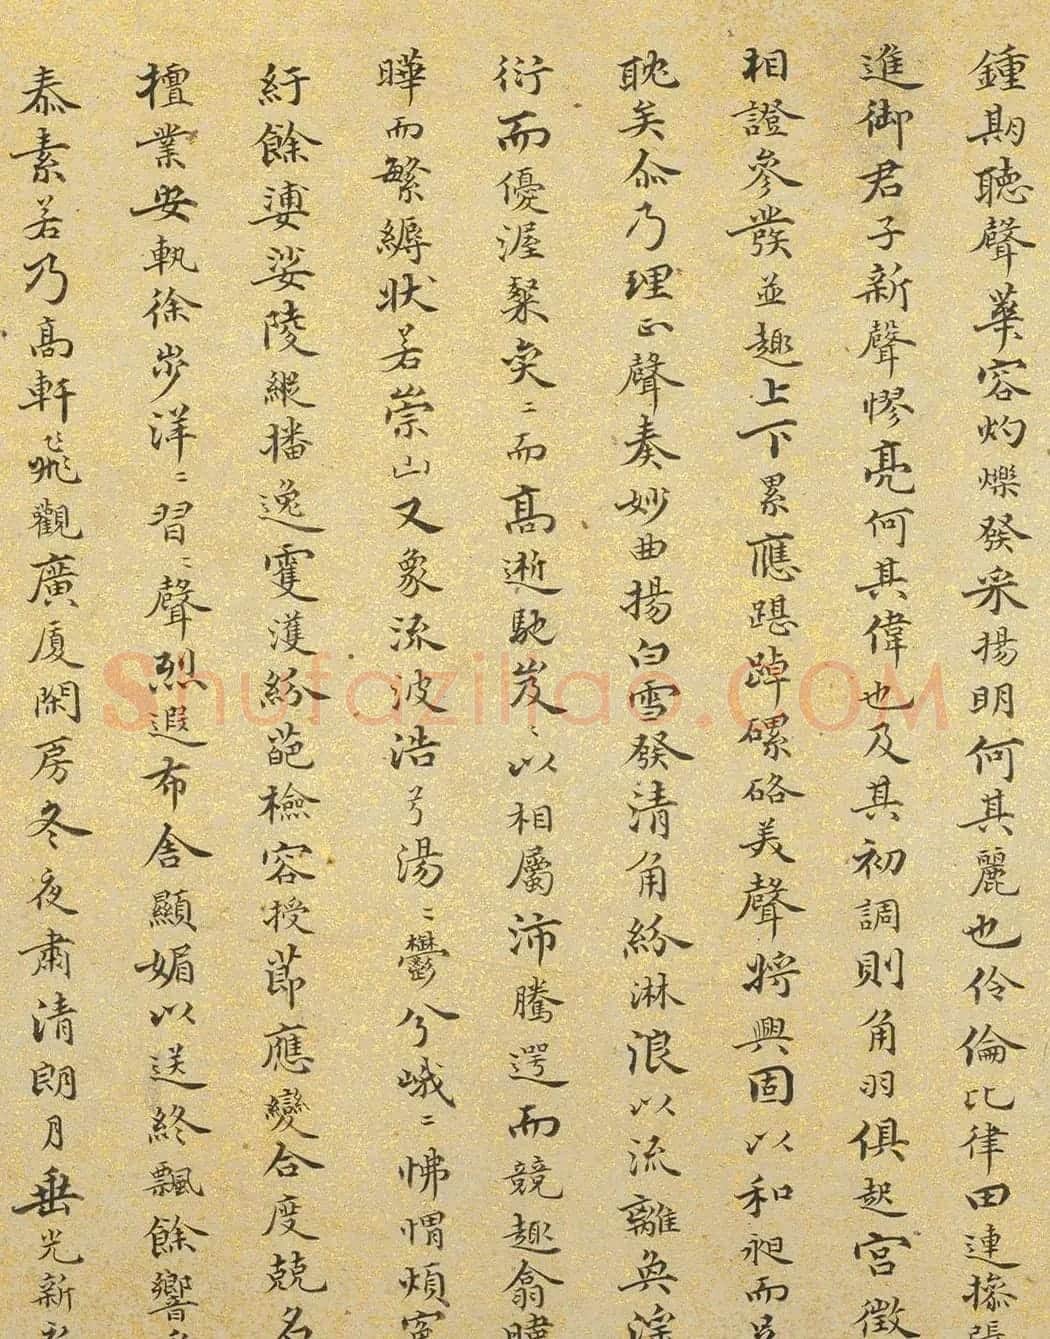 鍾期聽聲華容灼爍發采揚明何其麗也伶倫比律田連操張
進御君子新聲憀亮何其偉也及其初調則角羽俱起宮徵
相證參發並趣上下累應踸踔磥硌美聲將興固以和昶而足
耽矣尒乃理正聲奏妙曲揚白雪發清角紛淋浪以流離奐淫
衍而優渥粲奕〻而高逝馳岌〻以相屬沛騰遻而競趣翕韡
曄而繁縟狀若崇山又象流波浩兮湯〻鬱兮峨〻怫愲煩冤
紆餘婆娑陵縱播逸霍濩紛葩檢容授節應變合度兢名
擅業安軌徐步洋〻習〻聲烈遐布含顯媚以送終飄餘響
泰素若乃高軒飛觀廣厦閑房冬夜肅清朗月垂光新
Shufaziliao.COM